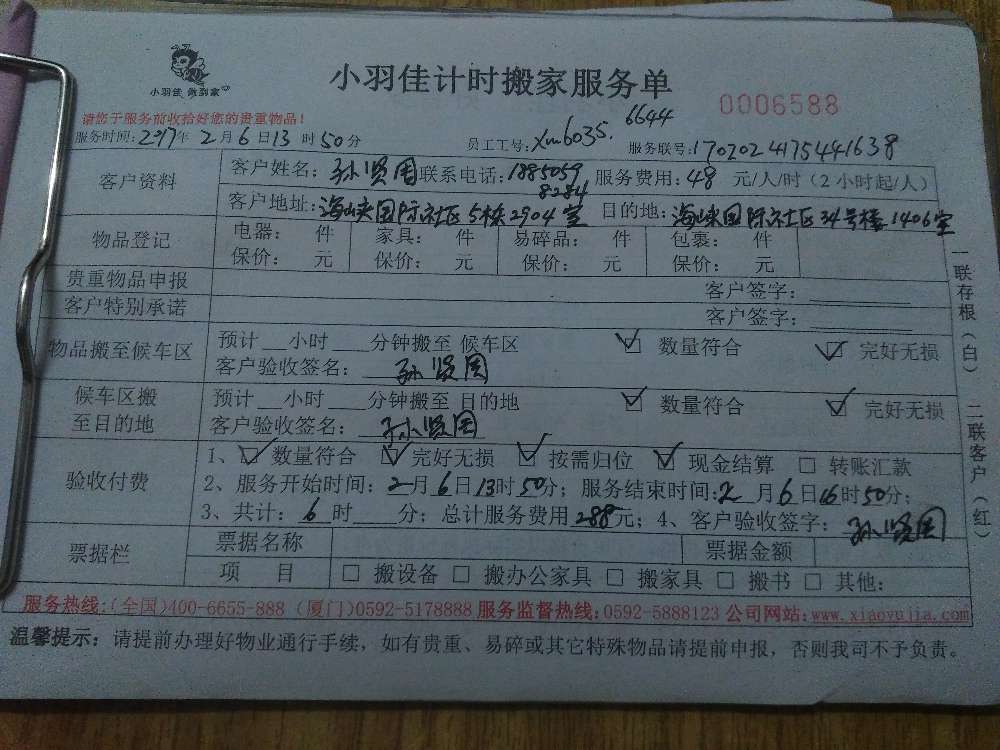 小羽佳 做到家
小羽佳计时搬家服务单
0006588
请您于服务前收拾好您的贵重物品!
服务时间: 2017年 2月 6日 13时 50分 员工工号: xm6035. 6644 服务联号: 1702024175441638
客户资料 客户姓名: 孙贤国 联系电话: 1885059 8284 服务费用: 48 元/人/时(2小时起/人)
客户地址: 海峡国际社区5栋2904室 目的地: 海峡国际社区34号楼1406室
物品登记 电器: 件 家具: 件 易碎品: 件 包裹: 件
保价: 元 保价: 元 保价: 元 保价: 元
贵重物品申报 客户签字:
客户特别承诺 客户签字:
物品搬至候车区 预计 小时 分钟搬至 候车区 ☑ 数量符合 ☑ 完好无损
客户验收签名: 孙贤国
候车区搬至目的地 预计 小时 分钟搬至 目的地 ☑ 数量符合 ☑ 完好无损
客户验收签名: 孙贤国
验收付费 1、☑ 数量符合 ☑ 完好无损 ☑ 按需归位 ☑ 现金结算 □ 转账汇款
2、服务开始时间: 2月6日13时50分; 服务结束时间: 2月6日16时50分;
3、共计: 6时 分; 总计服务费用 288元; 4、客户验收签字: 孙贤国
票据栏 票据名称 票据金额
项 目 □ 搬设备 □ 搬办公家具 □ 搬家具 □ 搬书 □ 其他:
一联存根(白) 二联客户(红)
服务热线:(全国)400-6655-888 (厦门)0592-5178888 服务监督热线:0592-5888123 公司网站:www.xiaoyujia.com
温馨提示: 请提前办理好物业通行手续,如有贵重、易碎或其它特殊物品请提前申报,否则我司不予负责。